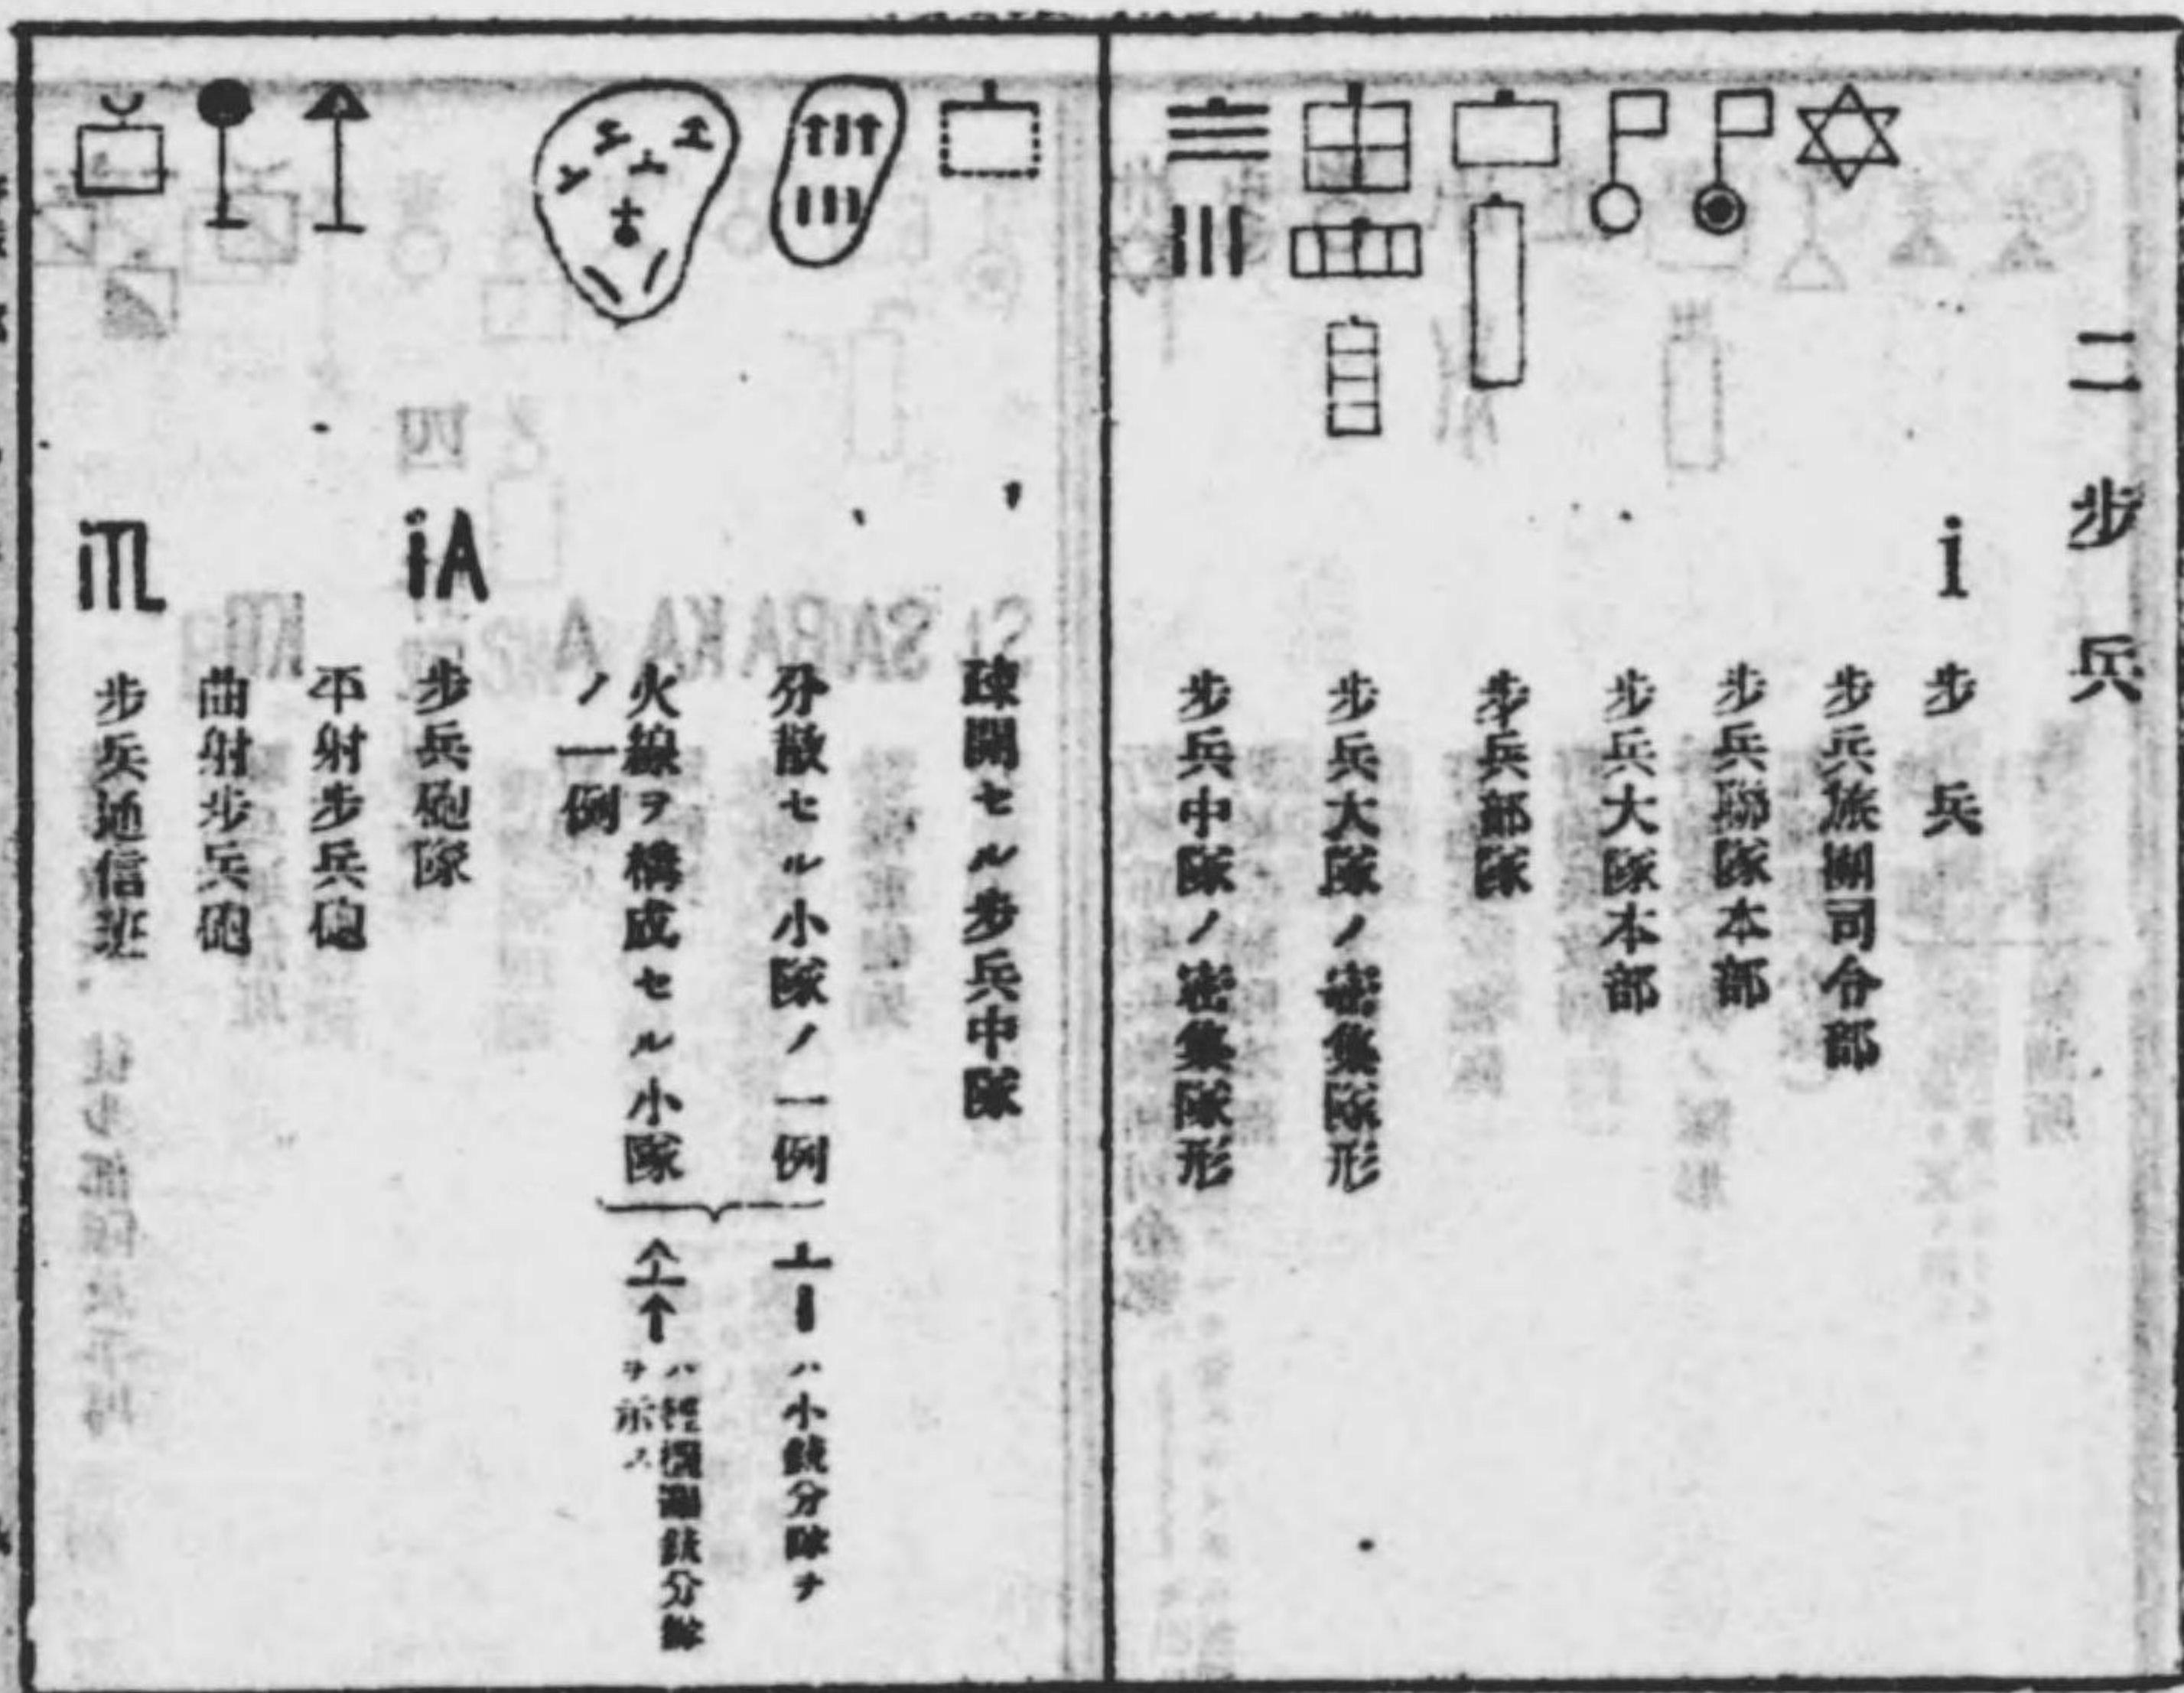 二 步 兵
i 步 兵
步兵旅團司令部
步兵聯隊本部
步兵大隊本部
步兵部隊
步兵大隊ノ密集隊形
步兵中隊ノ密集隊形
疎開セル步兵中隊
分散セル小隊ノ一例
火線ヲ構成セル小隊
ノ一例
ハ小銃分隊ヲ
ハ輕機關銃分隊
ヲ示ス
iA 步兵砲隊
平射步兵砲
曲射步兵砲
iTL 步兵通信班